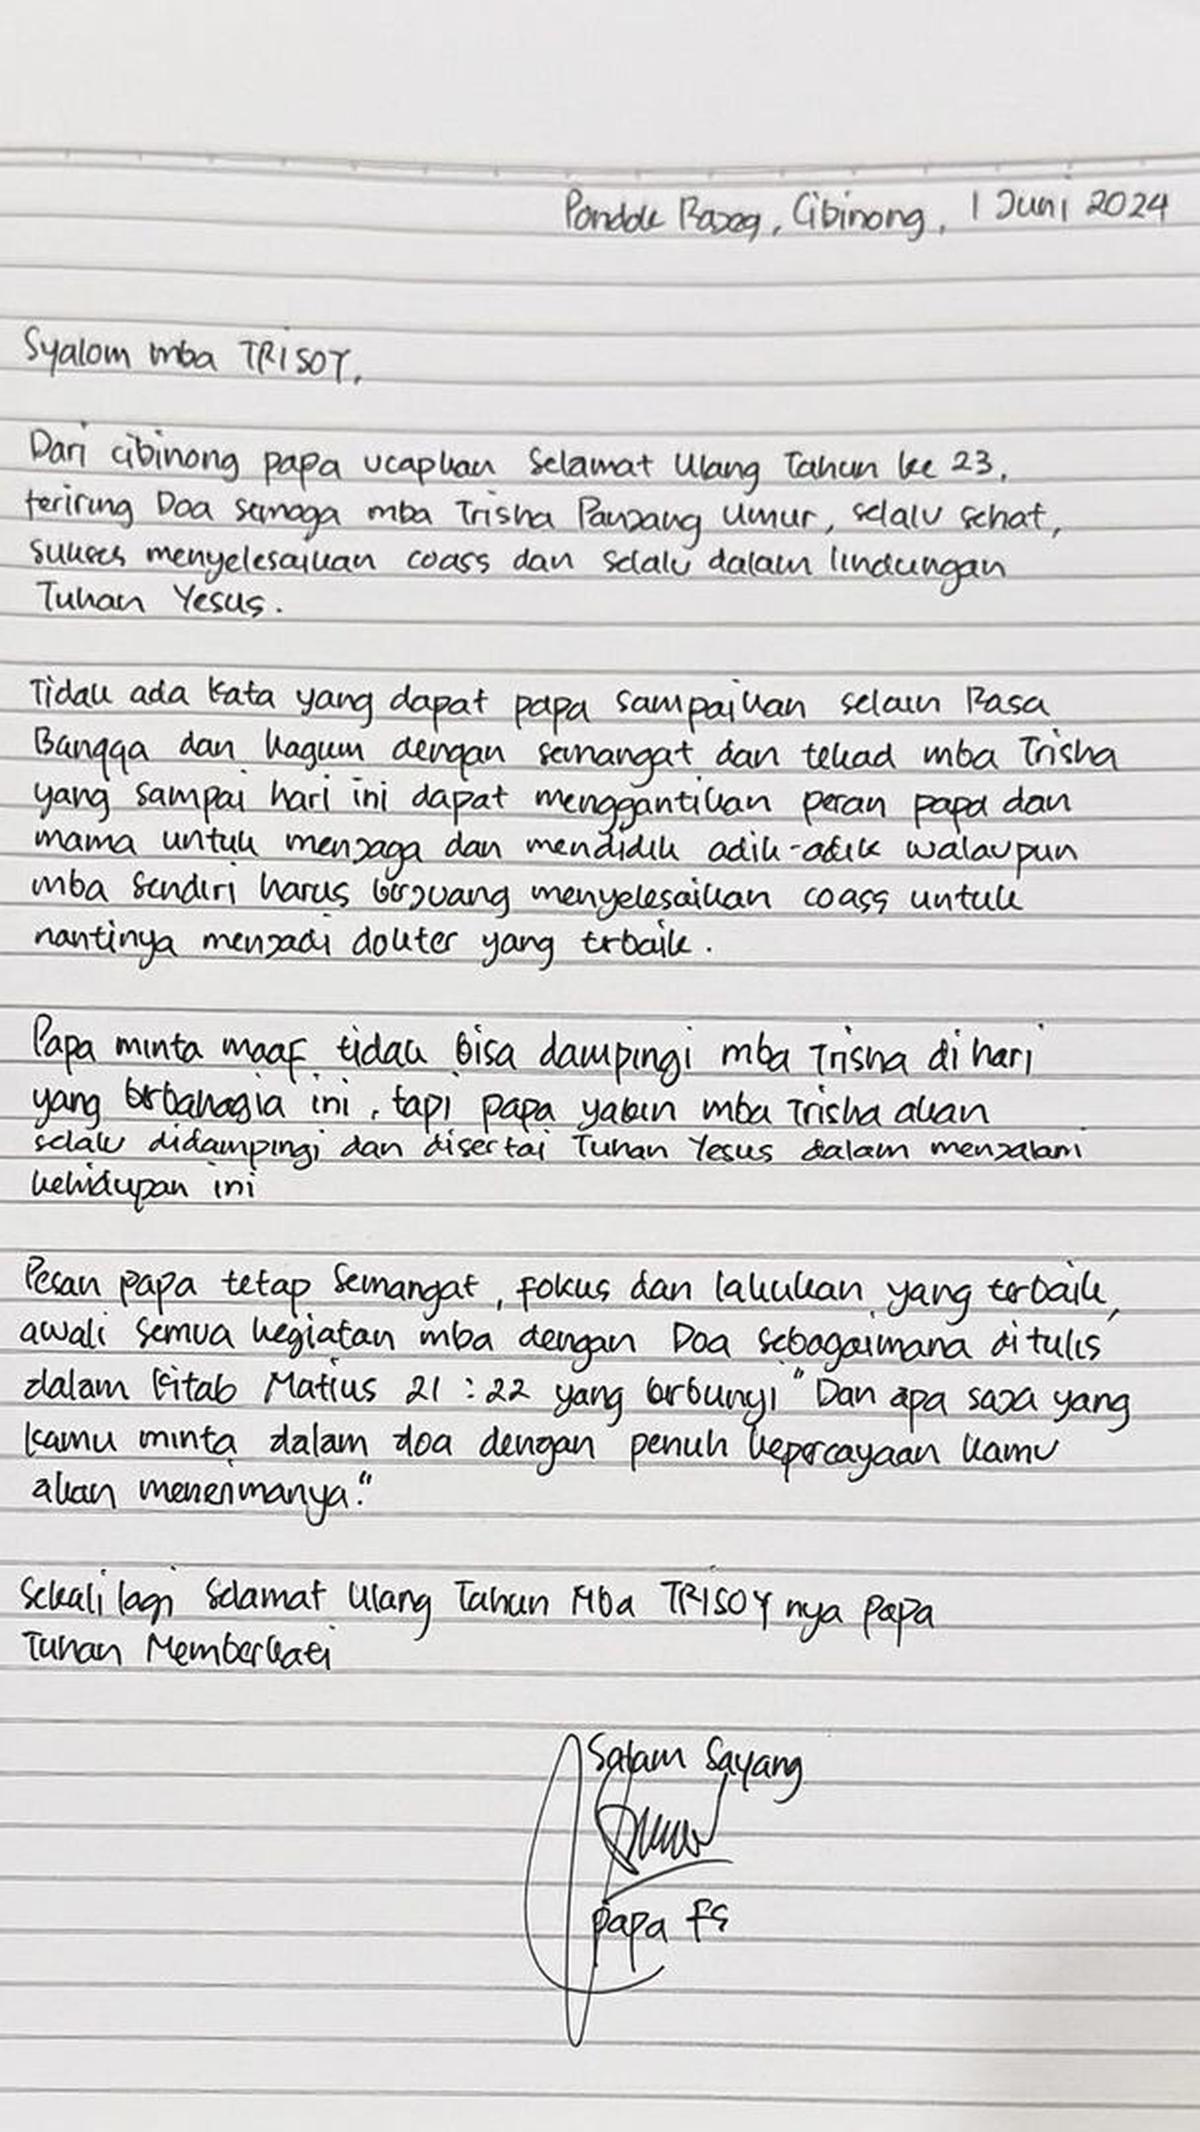 Pondok Rajeg, Cibinong, 1 Juni 2024
Syalom mba TRISOY,
Dari Cibinong papa ucapkan Selamat Ulang Tahun ke 23,
teriring Doa semoga mba Trisha Panjang Umur, selalu sehat,
sukses menyelesaikan coass dan selalu dalam lindungan
Tuhan Yesus.
Tidak ada kata yang dapat papa sampaikan selain Rasa
Bangga dan kagum dengan semangat dan tekad mba Trisha
yang sampai hari ini dapat menggantikan peran papa dan
mama untuk menjaga dan mendidik adik-adik walaupun
mba sendiri harus berjuang menyelesaikan coass untuk
nantinya menjadi dokter yang terbaik.
Papa minta maaf tidak bisa dampingi mba Trisha di hari
yang berbahagia ini, tapi papa yakin mba Trisha akan
selalu didampingi dan disertai Tuhan Yesus dalam menjalani
kehidupan ini
Pesan papa tetap Semangat, fokus dan lakukan yang terbaik,
awali semua kegiatan mba dengan Doa sebagaimana di tulis
dalam kitab Matius 21:22 yang berbunyi "Dan apa saja yang
kamu minta dalam doa dengan penuh kepercayaan kamu
akan menerimanya."
Sekali lagi Selamat Ulang Tahun Mba TRISOY nya papa
Tuhan Memberkati
Salam Sayang
papa FS